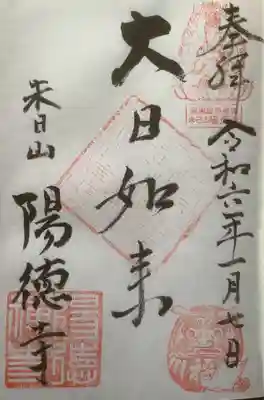 奉拝
令和六年一月七日
大日如来
朱日山
陽徳寺